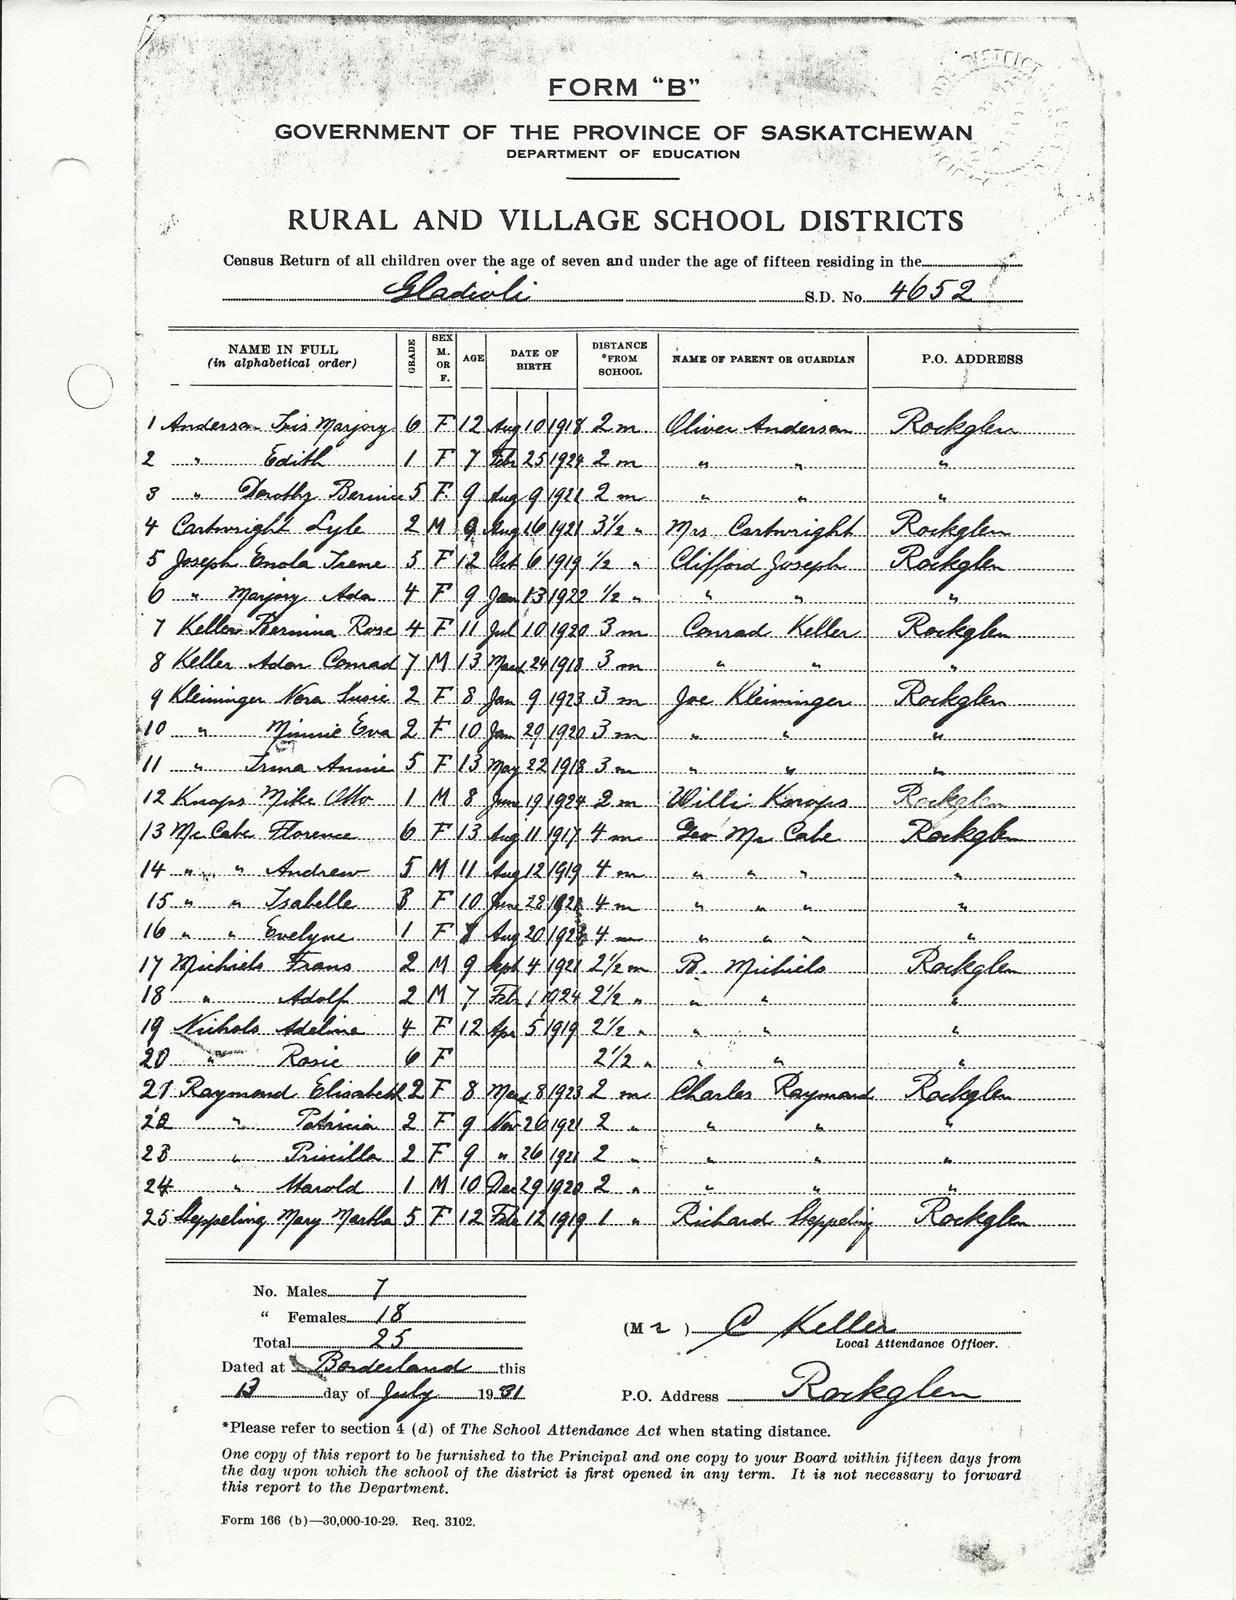 FORM "B"
GOVERNMENT OF THE PROVINCE OF SASKATCHEWAN
DEPARTMENT OF EDUCATION
RURAL AND VILLAGE SCHOOL DISTRICTS
Census Return of all children over the age of seven and under the age of fifteen residing in the
Gladioli S.D. No. 4652
NAME IN FULL (in alphabetical order) GRADE SEX M. OR F. AGE DATE OF BIRTH DISTANCE *FROM SCHOOL NAME OF PARENT OR GUARDIAN P.O. ADDRESS
1 Anderson Iris Marjory 6 F 12 Aug 10 1918 2 m Oliver Anderson Rockglen
2 " Edith 1 F 7 Feb 25 1924 2 m " " "
3 " Dorothy Bernice 5 F 9 Aug 9 1921 2 m " " "
4 Cartwright Lyle 2 M 9 Aug 16 1921 3 1/2 " Mrs Cartwright Rockglen
5 Joseph Enola Irene 5 F 12 Oct 6 1919 1/2 " Clifford Joseph Rockglen
6 " Marjory Ada 4 F 9 Jan 13 1922 1/2 " " " "
7 Keller Bernina Rose 4 F 11 Jul 10 1920 3 m Conrad Keller Rockglen
8 Keller Adam Conrad 7 M 13 Mar 24 1918 3 m " " "
9 Kleininger Nora Susie 2 F 8 Jan 9 1923 3 m Joe Kleininger Rockglen
10 " Minnie Eva 2 F 10 Jan 29 1920 3 m " " "
11 " Irma Annie 5 F 13 May 22 1918 3 m " " "
12 Knops Mike Otto 1 M 8 June 19 1924 2 m Willi Knops Rockglen
13 Mc Cabe Florence 6 F 13 Aug 11 1917 4 m Geo Mc Cabe Rockglen
14 " " Andrew 5 M 11 Aug 12 1919 4 m " " " "
15 " " Isabelle 3 F 10 June 28 4 m " " " "
16 " " Evelyne 1 F Aug 20 4 m " " " "
17 Michiels Frans 2 M 9 Sept 4 1921 2 1/2 m B. Michiels Rockglen
18 " Adolf 2 M 7 Feb 1 1924 2 1/2 " " " "
19 Nichols Adeline 4 F 12 Apr 5 1919 2 1/2 " " " "
20 " Rosie 6 F 2 1/2 " " " "
21 Raymond Elisabeth 2 F 8 Mar 8 1923 2 m Charles Raymond Rockglen
22 " Patricia 2 F 9 Nov 26 1921 2 " " " "
23 " Priscilla 2 F 9 " 26 1921 2 " " " "
24 " Harold 1 M 10 Dec 29 1920 2 " " " "
25 Steppeling Mary Martha 5 F 12 Feb 12 1919 1 " Richard Steppeling Rockglen
No. Males 7
" Females 18
Total 25
(Mr) C Keller
Local Attendance Officer.
Dated at Borderland this
13 day of July 1931
P.O. Address Rockglen
*Please refer to section 4 (d) of The School Attendance Act when stating distance.
One copy of this report to be furnished to the Principal and one copy to your Board within fifteen days from
the day upon which the school of the district is first opened in any term. It is not necessary to forward
this report to the Department.
Form 166 (b)—30,000-10-29. Req. 3102.